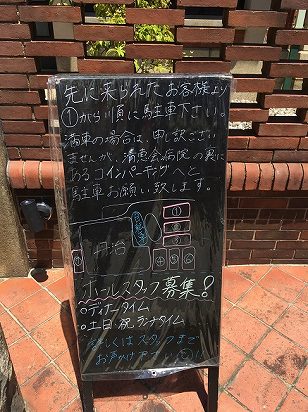 先に来られたお客様より
①から順に駐車下さい。
満車の場合は、申し訳ござい
ませんが、満恵会病院の裏に
あるコインパーキングへと
駐車お願い致します。
①
②
③
丹治
④⑤⑥
ホールスタッフ募集!
○ディナータイム
○土日・祝 ランチタイム
詳しくはスタッフまで
お声かけ下さい!!